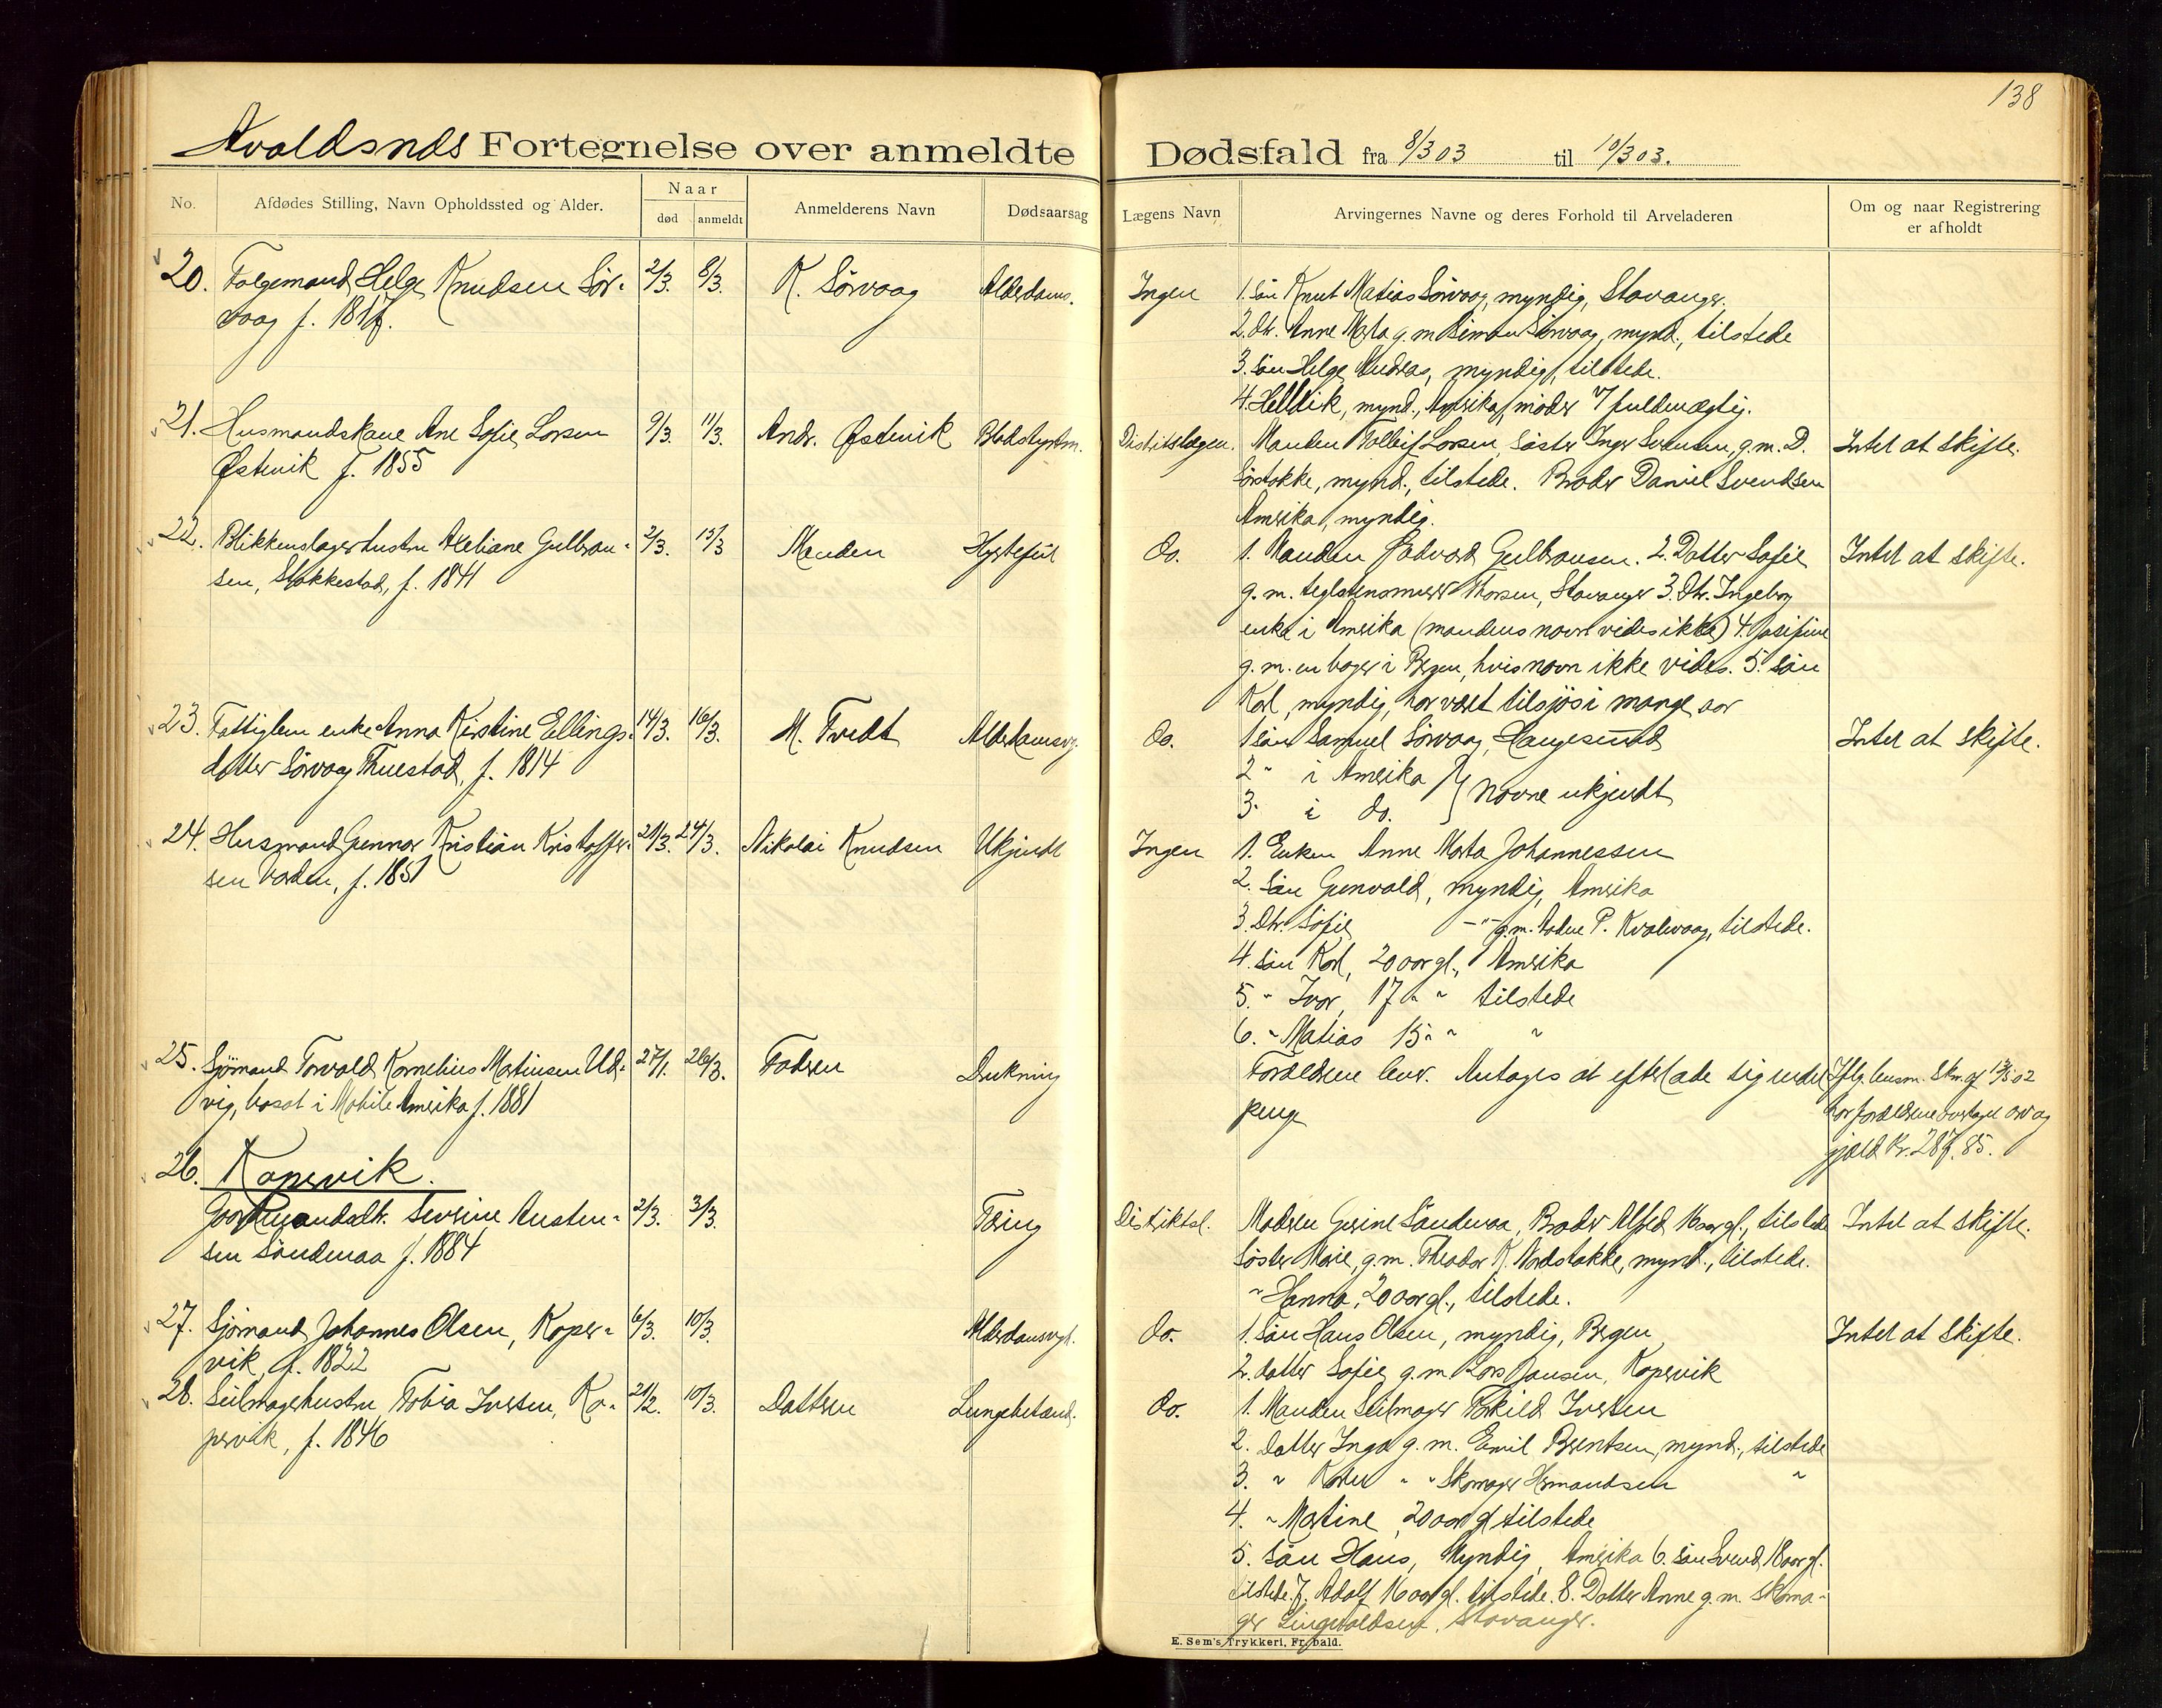 138
Avaldsnes Fortegnelse over anmeldte Dødsfald fra 8/3 03 til 10/3 03.
No. Afdødes Stilling, Navn Opholdssted og Alder. Naar død anmeldt Anmelderens Navn Dødsaarsag Lægens Navn Arvingernes Navne og deres Forhold til Arveladeren Om og naar Registrering er afholdt
20. Folgemand Helge Knudsen Sör- 2/3. 8/3. K. Sörvaag Alderdoms. Ingen 1. Sön Knut Matias Sörvaag, myndig, Stavanger.
vaag f. 1817. 2. Dtr. Anne Marta g. m. Simon Sörvaag, mynd., tilstede
3. Sön Helge Andreas, myndig, tilstede.
4. Helldik, mynd., Amerika, / møder 7 fuldmægtig.
21. Husmandskone Ane Sofie Larsen 9/3. 11/3. Andr. Østevik Blodstyrtn. Distriktslægen. Manden Tolleif Larsen, Søster Inger Svensen, g. m. D. Intet at skifte.
Østevik f. 1855 Sörstokke, mynd., tilstede. Broder Daniel Svendsen
Amerika, myndig.
22. Blikkenslagerhustru Axeliane Gulbran- 2/3. 13/3 Manden Hjertefeil Do. 1. Manden Edvard Gulbransen. 2. Datter Sofie Intet at skifte.
sen, Stokkestad, f. 1841 g. m. teglstensmurer Thorsen, Stavanger 3. Dtr. Ingeborg
enke i Amerika (mandens navn vides ikke) 4. Josifine
g. m. en bager i Bergen, hvis navn ikke vides. 5. Sön
Karl, myndig, har været tilsjøs i mange aar
23. Fattiglem enke Anna Kristine Ellings- 14/3. 16/3. M. Tvedt Alderdomsv. Do. 1 sön Samuel Sörvaag, Haugesund Intet at skifte.
datter Sörvaag Thuestad, f. 1814 2 " i Amerika } Navne ukjendt
3. i do.
24. Husmand Gunnar Kristian Kristoffer- 21/3. 24/3. Nikolai Knudsen Ukjendt Ingen 1. Enken Anne Marta Johannessen
sen Vorden, f. 1851 2. Sön Gunvald, myndig, Amerika
3. Dtr. Sofie, -"- g. m. Aadne P. Kvalavaag, tilstede.
4. Sön Karl, 20 aar gl., Amerika
5. " Ivar, 17 " " tilstede
6. " Matias 15 " " "
25. Sjömand Torvald Kornelius Matiusen Ud- 27/1. 26/3. Faderen Drukning Forældrene lever. Antages at efterlade sig endel Iflg. lensm. Skr. af 13/5 02
vig, bosat i Mobile Amerika f. 1881 penge har forældrene overtaget arv og
gjæld Kr. 287.85.
26. Kopervik.
Gaardmandsdtr. Severine Austen- 2/3. 3/3. Tæring Distriktsl. Moderen Gurine Söndenaa, Broder Alfred 16 aar gl., tilstede Intet at skifte.
sen Söndenaa f. 1884 Søster Marie, g. m. Theodor K. Nordstokke, mynd., tilstede.
" Hanna, 20 aar gl., tilstede.
27. Sjömand Johannes Olsen, Koper- 6/3. 10/3. Alderdomsvgh. Do. 1. Sön Hans Olsen, myndig, Bergen Intet at skifte.
vik, f. 1822 2. datter Sofie g. m Lars Jansen, Kopervik
28. Seilmagerhustru Tobia Iversen, Ko- 21/2. 10/3. Datteren Lungebetænd. Do. 1. Manden Seilmager Torkild Iversen
pervik, f. 1846 2. datter Inga g. m. Emil Berentsen, mynd., tilstede
3. " Karen " " Skomager Hermandsen "
4. " Martine 20 aar gl tilstede
5. Sön Hans, Myndig, Amerika 6. Sön Svend, 18 aar gl.
tilstede. 7. Adolf 16 aar gl. tilstede. 8. Datter Anne g. m. Skoma-
ger Lingvaldsen, Stavanger.
E. Sem's Trykkeri, Fr.hald.